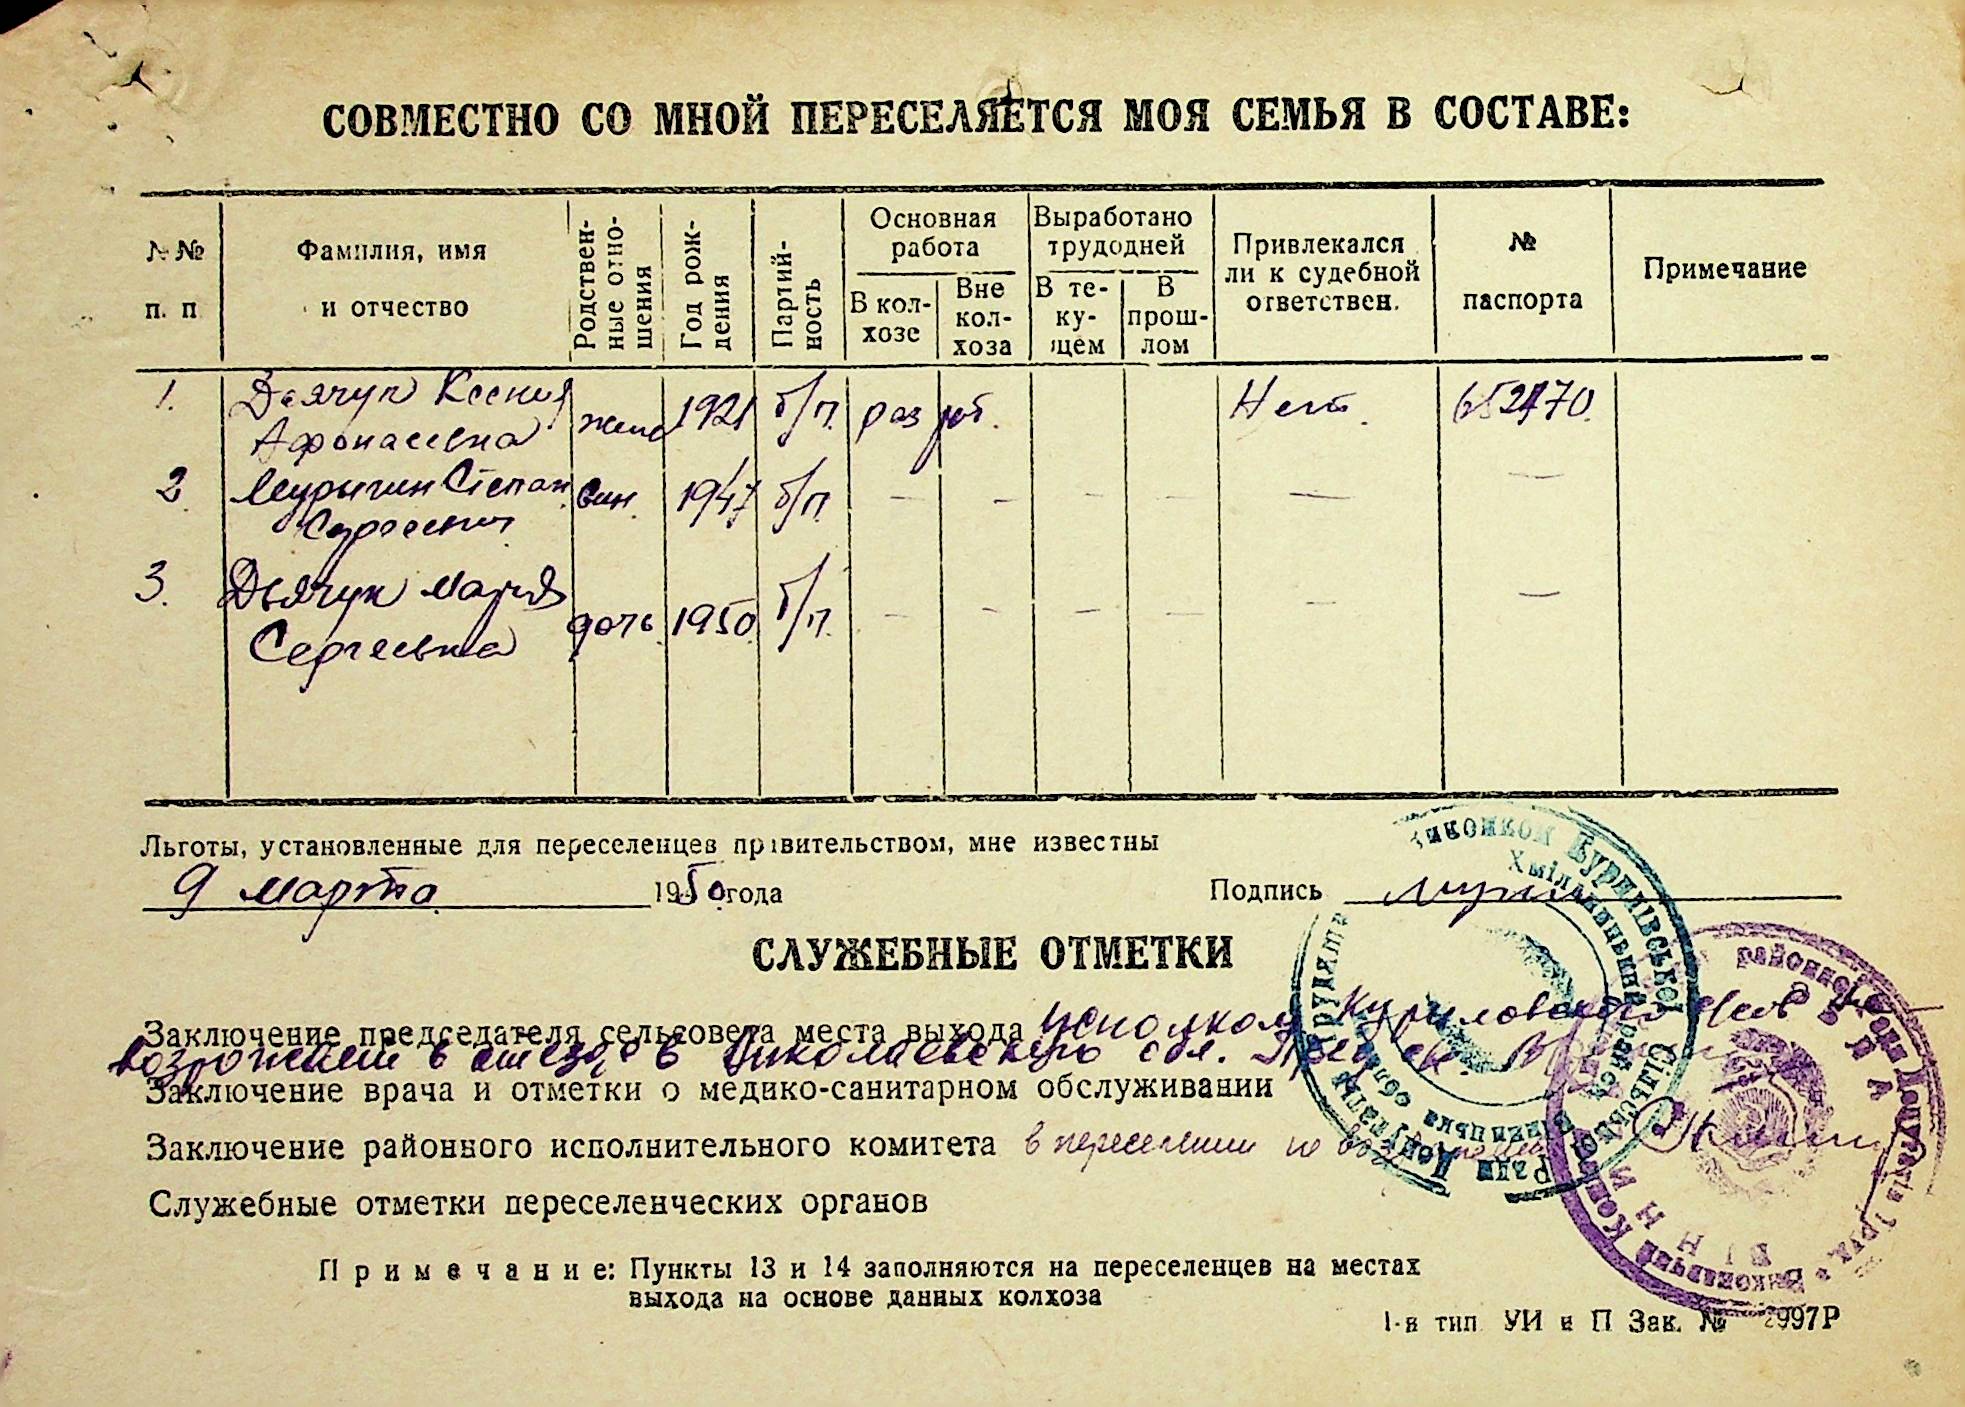 СОВМЕСТНО СО МНОЙ ПЕРЕСЕЛЯЕТСЯ МОЯ СЕМЬЯ В СОСТАВЕ:
№№ п. п
Фамилия, имя и отчество
Родствен-ные отно-шения
Год рож-дения
Партий-ность
Основная работа
В кол-хозе
Вне кол-хоза
Выработано трудодней
В те-ку-щем
В прош-лом
Привлекался ли к судебной ответствен.
№ паспорта
Примечание
1. Дьячук Ксения жена 1921 б/п. раз раб. Нет.
Афонасевна
2 Степан 1947 б/п. — — — — — —
3. Дьячук Мария дочь 1950 б/п. — — — — — —
Сергеевна
Льготы, установленные для переселенцев правительством, мне известны
9 марта 1950 года Подпись
СЛУЖЕБНЫЕ ОТМЕТКИ
Заключение председателя сельсовета места выхода исполком Куриловского
в Николаевскую обл.
Заключение врача и отметки о медико-санитарном обслуживании
Заключение районного исполнительного комитета в переселении
Служебные отметки переселенческих органов
Примечание: Пункты 13 и 14 заполняются на переселенцев на местах
выхода на основе данных колхоза
1-я тип УИ и П Зак. № 2997Р